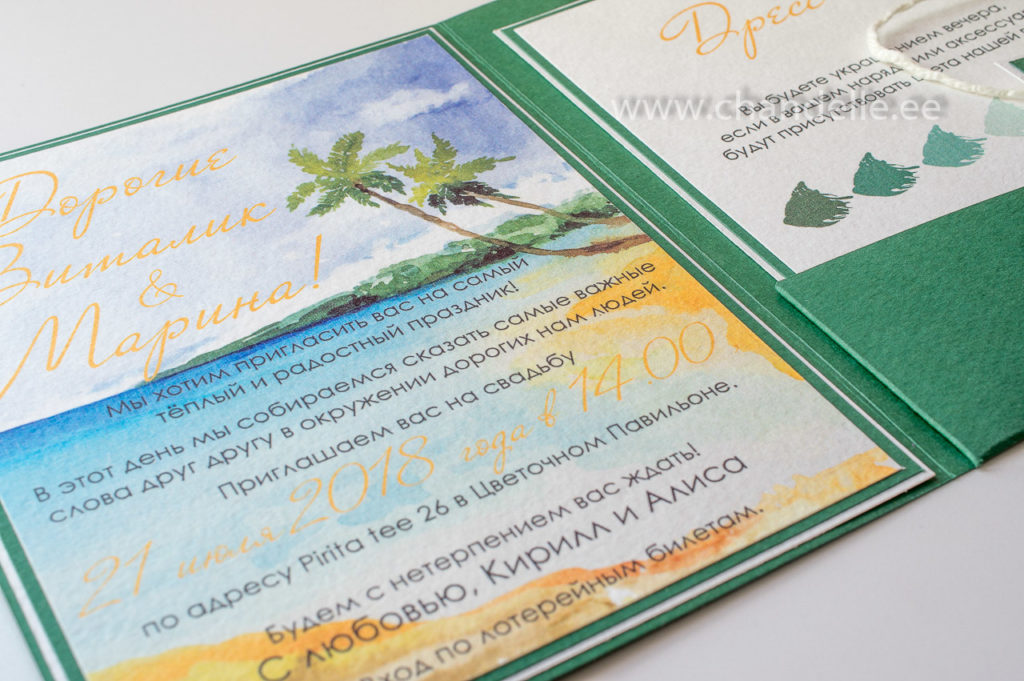 Дорогие
Виталик
&
Марина!
Мы хотим пригласить вас на самый
тёплый и радостный праздник!
В этот день мы собираемся сказать самые важные
слова друг другу в окружении дорогих нам людей.
Приглашаем вас на свадьбу
21 июля 2018 года в 14.00
по адресу Pirita tee 26 в Цветочном Павильоне.
Будем с нетерпением вас ждать!
С любовью, Кирилл и Алиса
Вход по лотерейным билетам.
Дресс
Вы будете украшением вечера,
если в вашем наряде или аксессуа
будут присутствовать цвета нашей
www.chandelle.ee